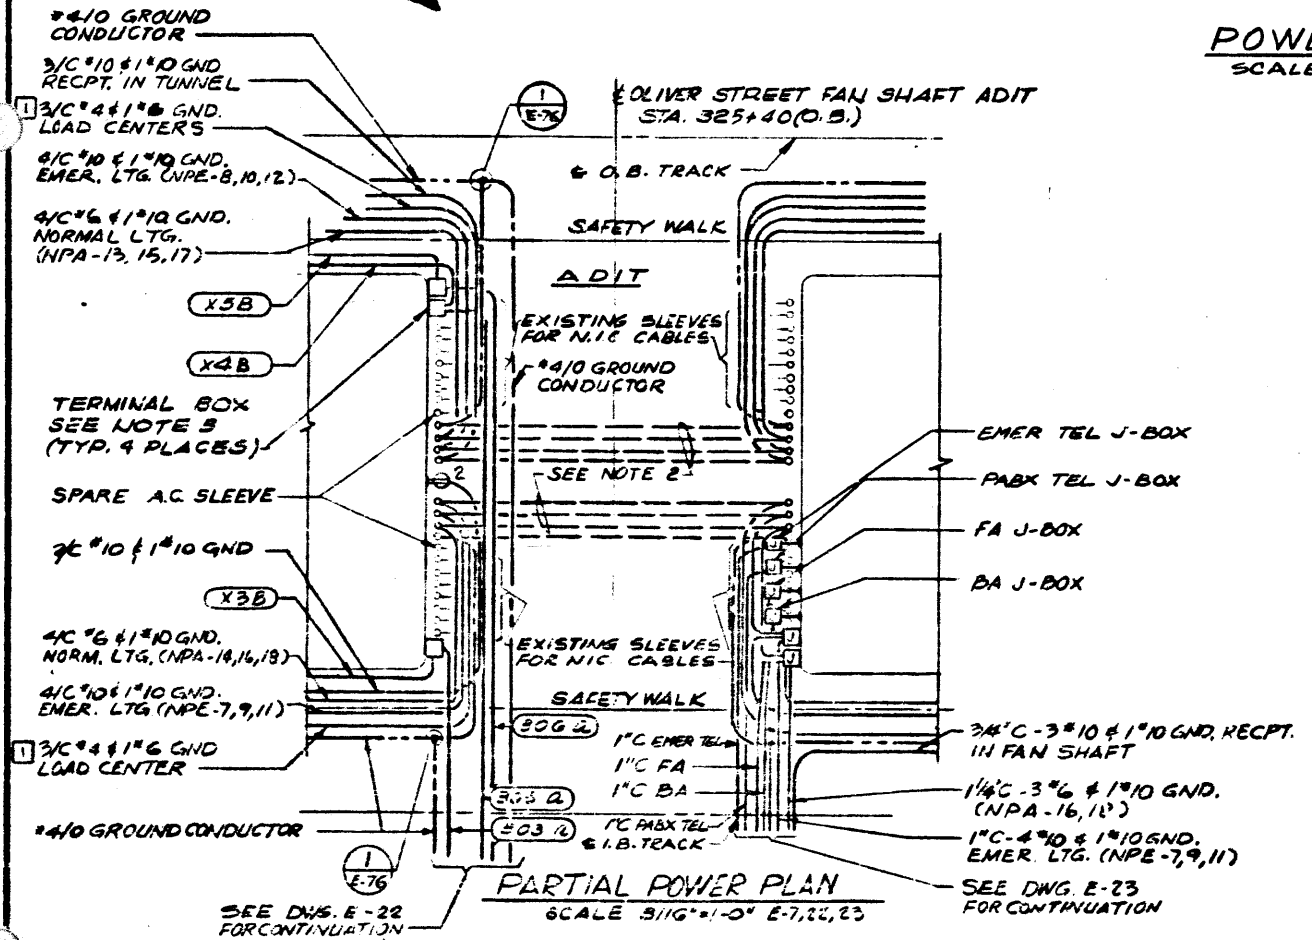 #4/0 GROUND
CONDUCTOR
3/C #10 & 1#10 GND
RECPT. IN TUNNEL
1 3/C #4 & 1#6 GND.
LOAD CENTERS
4/C #10 & 1#10 GND.
EMER. LTG. (NPE-8,10,12)
4/C #6 & 1#10 GND.
NORMAL LTG.
(NPA-13, 15, 17)
X5B
X4B
TERMINAL BOX
SEE NOTE 3
(TYP. 4 PLACES)
SPARE A.C. SLEEVE
3/C #10 & 1#10 GND
X3B
4/C #6 & 1#10 GND.
NORM. LTG. (NPA-14,16,18)
4/C #10 & 1#10 GND.
EMER. LTG (NPE-7,9,11)
1 3/C #4 & 1#6 GND
LOAD CENTER
#4/0 GROUND CONDUCTOR
1
E-76
SEE DWG. E-22
FOR CONTINUATION
1
E-76
℄ OLIVER STREET FAN SHAFT ADIT
STA. 325+40 (O.B.)
℄ O.B. TRACK
SAFETY WALK
ADIT
EXISTING SLEEVES
FOR N.I.C CABLES
#4/0 GROUND
CONDUCTOR
2
SEE NOTE 2
EXISTING SLEEVES
FOR NIC CABLES
SAFETY WALK
1"C EMER TEL
1"C FA
1"C BA
1"C PABX TEL
℄ I.B. TRACK
PARTIAL POWER PLAN
SCALE 3/16"=1'-0" E-7,22,23
POWE
SCALE
EMER TEL J-BOX
PABX TEL J-BOX
FA J-BOX
BA J-BOX
3/4"C-3#10 & 1#10 GND, RECPT.
IN FAN SHAFT
1 1/4"C-3#6 & 1#10 GND.
(NPA-16,
1"C-4#10 & 1#10 GND.
EMER. LTG. (NPE-7,9,11)
SEE DWG. E-23
FOR CONTINUATION